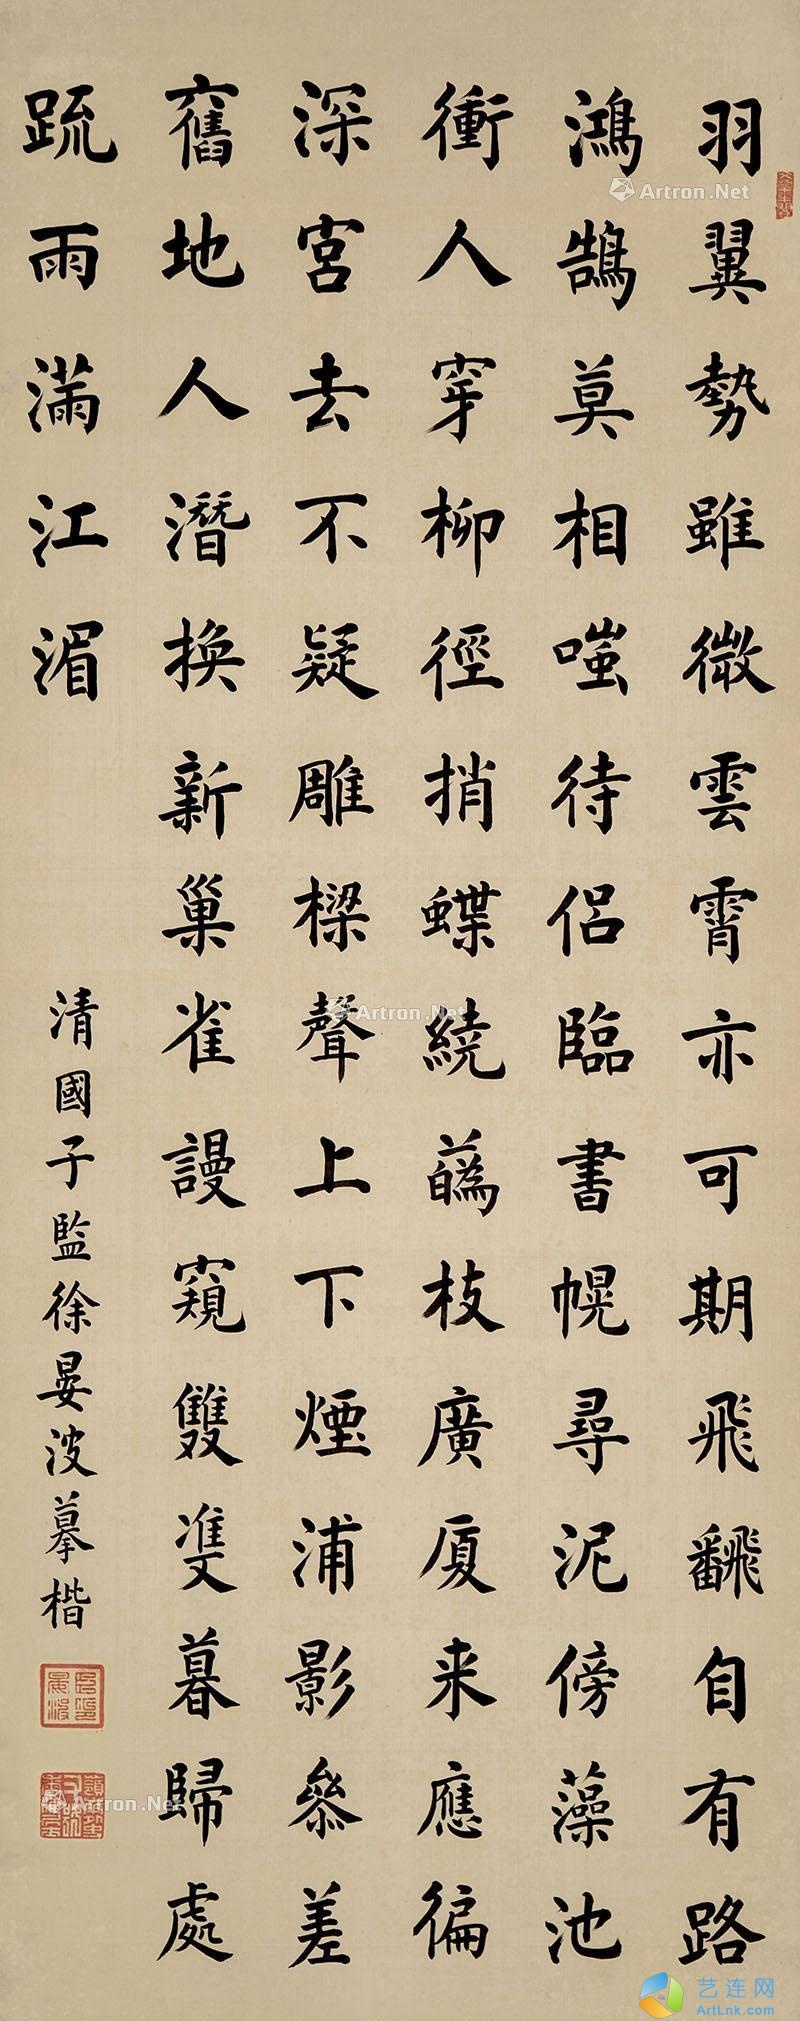 羽翼勢雖微雲霄亦可期飛飜自有路
鴻鵠莫相嗤待侶臨書幌尋泥傍藻池
衝人穿柳徑捎蝶繞蘤枝廣廈来應徧
深宮去不疑雕樑聲上下煙浦影叅差
舊地人潛換新巢雀謾窺雙雙暮歸處
䟽雨滿江湄
清國子監徐晏波摹楷
Artron.Net
Artron.Net
Artron.Net
艺连网
ArtLnk.com